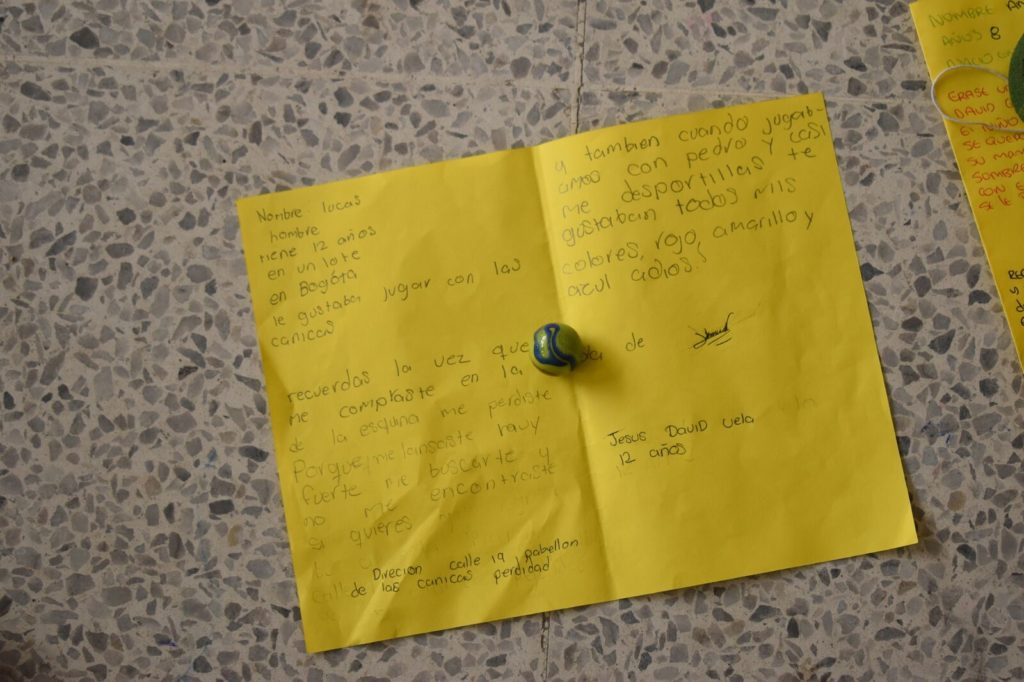 Nombre: lucas
hombre
tiene 12 años
en un lote
en Bogóta
le gustaba jugar con las
canicas
recuerdas la vez que
me compraste en la de
de la esquina me perdiste
Porque me lansaste muy
fuerte me buscarte y
no me encontraste
si quieres
Direcion calle 19 Pabellon
calle de las canicas perdidad
y tambien cuando jugab-
amos con pedro y casi
me desportillas te
gustaban todos mis
colores, rojo, amarillo y
azul adios!
Jesus David vela
12 años
NOMBRE
AÑOS 8
ERASE
DAVID
EL NIÑO
SE QUE
SU MA
SOMBR
CON
SE LE
y